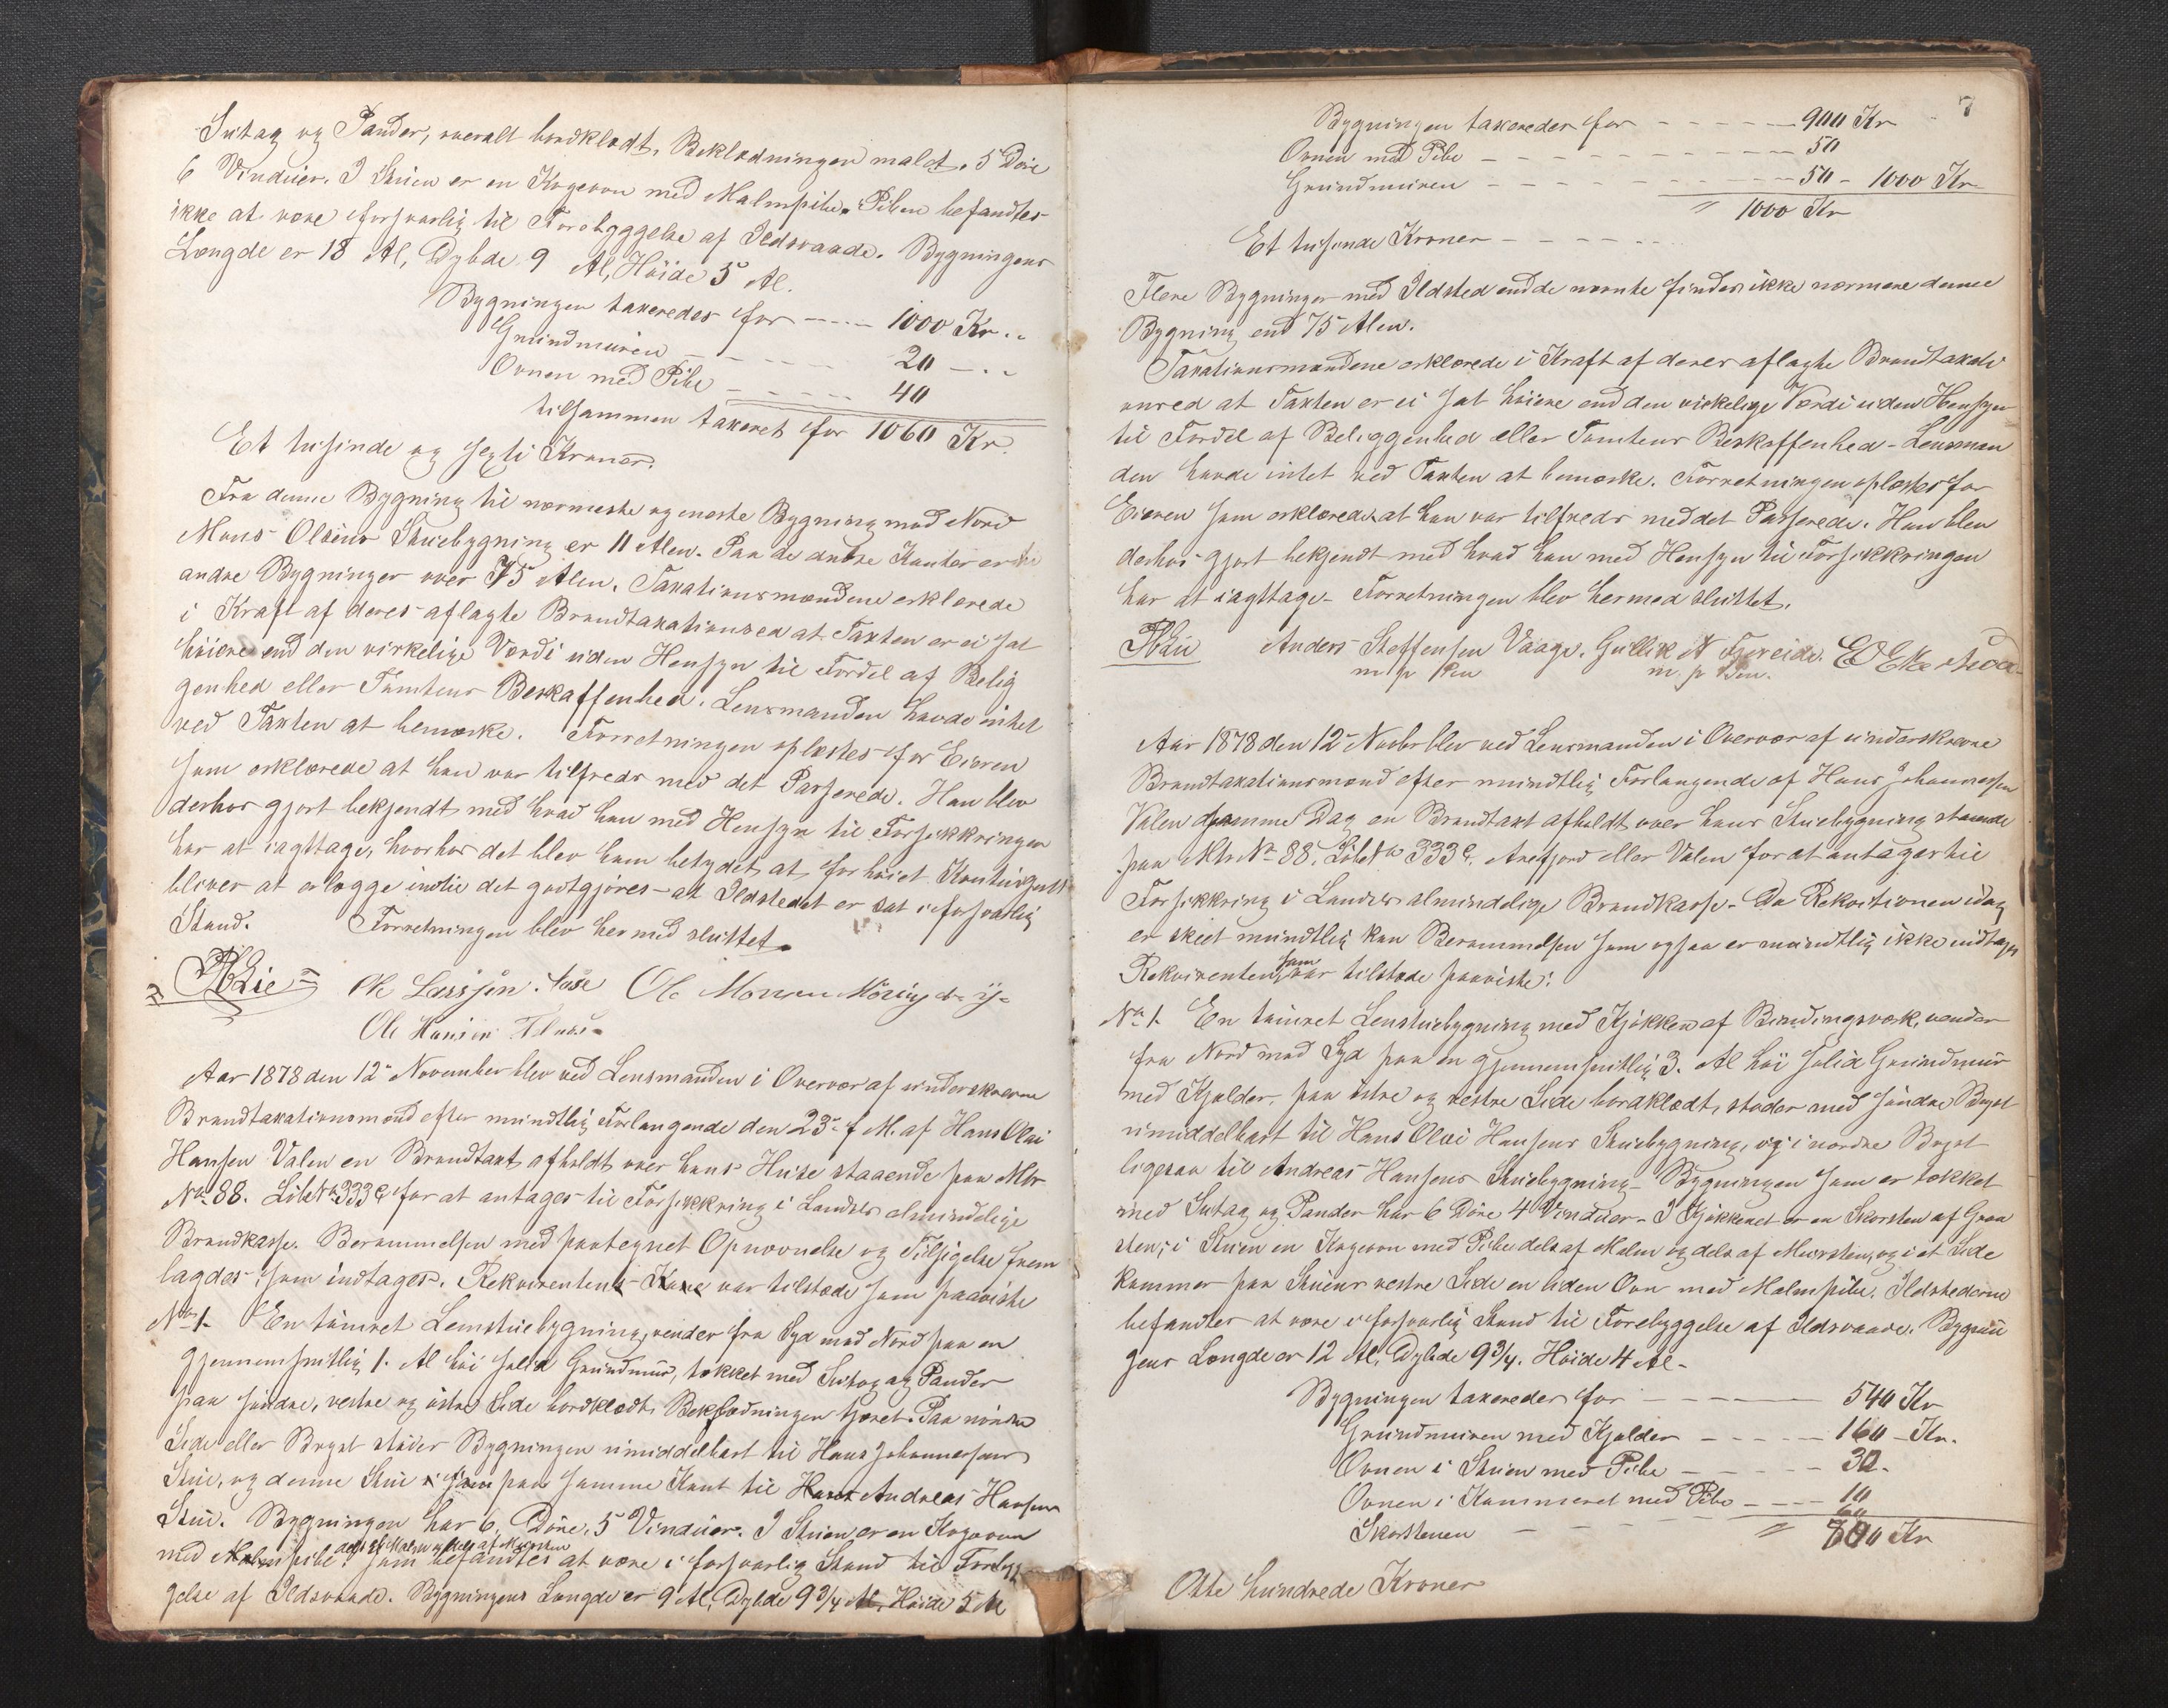 Sutag og Pander, overalt bordklædt, Beklædningen malet. 5 Döre
6 Vinduer. I Stuen er en Kogeovn med Malmpibe. Piben befandtes
ikke at være forsvarlig til Forebyggelse af Ildsvaade. Bygningens
Længde er 18 Al, Dybde 9 Al, Höide 5 Al.
Bygningen taxeredes for 1000 Kr.
Grundmuren 20
Ovnen med Pibe 40
tilsammen taxeret for 1060 Kr.
Et tusinde og sexti Kroner.
Fra denne Bygning til nærmeste og eneste Bygning mod Nord
Mons Olsens Stuebygning er 11 Alen. Paa de andre Kanter er
andre Bygninger over 75 Alen. Taxationsmændene erklærede
i Kraft af deres aflagte Brandtaxationsed at Taxten er ei sat
höiere end den virkelige Værdi uden Hensyn til Fordel af Belig
genhed eller Tomtens Beskaffenhed. Lensmanden havde intet
ved Taxten at bemærke. Forretningen oplæstes for Eieren
som erklærede at han var tilfreds med det Passerede. Han blev
derhos gjort bekjendt med hvad han med Hensyn til Forsikkringen
har at iagttage, hvorhos det blev ham betydet at forhöiet Kontingent
bliver at erlægge indtil det godtgjöres at Ildstedet er sat i forsvarlig
Stand. Forretningen blev hermed sluttet.
Lie Ole Larssen Aase Ole Monsen
Ole Hansen
Aar 1878 den 12 November blev ved Lensmanden i Overvær af underskrevne
Brandtaxationsmænd efter mundtlig Forlangende den 23 f. M. af Hans Olai
Hansen Valen en Brandtaxt afholdt over hans Huse staaende paa Mtr
No 88. Löbe No 333c for at antages til Forsikkring i Landets almindelige
Brandkasse. Berammelsen med paategnet Opnævnelse og Tilsigelse frem
lagdes som indtages. Rekvirentens Kone var tilstæde som paaviste
No 1. En tömret Lemstuebygning, vender fra Syd mod Nord paa en
gjennemsnitlig 1. Al höi solid Grundmur, tækket med Sutag og Pander
paa söndre, vestre og östre Side bordklædt, Beklædningen tjæret. Paa nördre
Side eller Bryst stöder Bygningen umiddelbart til Hans Johannessens
Stue, og denne Stue paa samme Kant til Andreas Hansens
Stue. Bygningen har 6 Döre, 5 Vinduer. I Stuen er en Kogeovn
dels af Malm og dels af Mursten
med Malmpibe som befandtes at være i forsvarlig Stand til Forebyg
gelse af Ildsvaade. Bygningens Længde er 9 Al, Dybde 9 3/4 Al, Höide 5 Al
7
Bygningen taxeredes for 900 Kr
Ovnen med Pibe 50
Grundmuren 50 - 1000 Kr
1000 Kr
Et tusende Kroner
Flere Bygninger med Ildsted end de nævnte findes ikke nærmere denne
Bygning end 75 Alen.
Taxationsmændene erklærede i Kraft af deres aflagte Brandtaxati
onsed at Taxten er ei sat höiere end den virkelige Værdi uden Hensyn
til Fordel af Beliggenhed eller Tomtens Beskaffenhed - Lensman
den havde intet ved Taxten at bemærke. Forretningen oplæstes for
Eieren som erklærede at han var tilfreds med det Passerede. Han blev
derhos gjort bekjendt med hvad han med Hensyn til Forsikkringen
har at iagttage - Forretningen blev hermed sluttet.
Lie Anders Steffensen Vaage. Gullik N Tjereide.
m p Pen m. p Pen.
Aar 1878 den 12 Novbr blev ved Lensmanden i Overvær af underskrevne
Brandtaxationsmænd efter mundtlig Forlangende af Hans Johannessen
Valen samme Dag en Brandtaxt afholdt over hans Stuebygning staaende
paa Mtr No 88, Löbe No 333c. Anefjord eller Valen for at antages til
Forsikkring i Landets almindelige Brandkasse - Da Rekvitionen idag
er skeet mundtlig kan Berammelsen som ogsaa er mundtlig ikke indtages
som
Rekvirenten var tilstæde paaviste:
No 1. En tömret Lemstuebygning med Kjökken af Bindingsværk, vender
fra Nord mod Syd paa en gjennemsnitlig 3. Al höi solid Grundmur
med Kjælder, paa östre og vestre Side bordklædt, stöder med söndre Bryst
umiddelbart til Hans Olai Hansens Stuebygning, og i nordre Bryst
ligesaa til Andreas Hansens Stuebygning - Bygningen som er tækket
med Sutag og Pander har 6 Döre 4 Vinduer - I Kjökkenet er en Skorsten af Graa
sten; i Stuen en Kogeovn med Pibe dels af Malm og dels af Mursten, og i et Side
kammer paa Stuens vestre Side en liden Ovn med Malmpibe. Ildstederne
befandtes at være i forsvarlig Stand til Forebyggelse af Ildsvaade. Bygnin
gens Længde er 12 Al, Dybde 9 3/4. Höide 4 Al -
Bygningen taxeredes for 540 Kr
Grundmuren med Kjælder 160 - Kr.
Ovnen i Stuen med Pibe 30 -
Ovnen i Kammeret med Pibe 10
Skorstenen 60
800 Kr
Otte hundrede Kroner